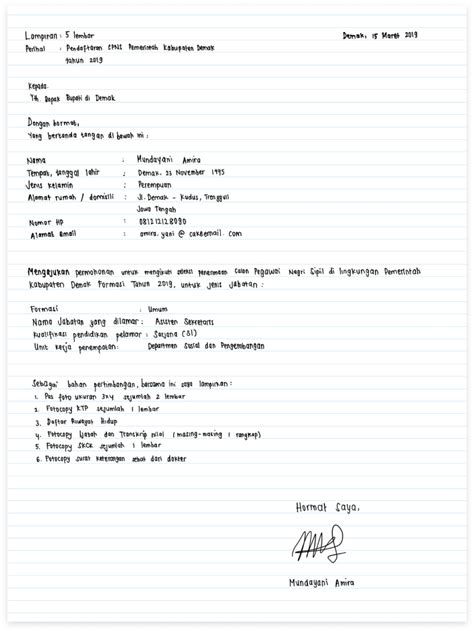 Lampiran : 5 lembar
Demak, 15 Maret 2019
Perihal : Pendaftaran CPNS Pemerintah Kabupaten Demak
tahun 2019
Kepada
Yth. Bapak Bupati di Demak
Dengan hormat,
Yang bertanda tangan di bawah ini :
Nama : Mundayani Amira
Tempat, tanggal lahir : Demak, 23 November 1995
Jenis kelamin : Perempuan
Alamat rumah / domisili : Jl. Demak - Kudus, Trengguli
Jawa Tengah
Nomor HP : 081212128090
Alamat email : amira.yani @ cakemail.com
Mengajukan permohonan untuk mengikuti seleksi penerimaan Calon Pegawai Negri Sipil di lingkungan Pemerintah
Kabupaten Demak Formasi Tahun 2019, untuk jenis jabatan :
Formasi : Umum
Nama Jabatan yang dilamar : Asisten Sekretaris
Kualifikasi pendidikan pelamar : Sarjana (S1)
Unit kerja penempatan : Departmen Sosial dan Pengembangan
Sebagai bahan pertimbangan, bersama ini saya lampirkan :
1. Pas foto ukuran 3x4 sejumlah 2 lembar
2. Fotocopy KTP sejumlah 1 lembar
3. Daftar Riwayat Hidup
4. Fotocopy Ijazah dan Transkrip nilai (masing-masing 1 rangkap)
5. Fotocopy SKCK sejumlah 1 lembar
6. Fotocopy surat keterangan sehat dari dokter
Hormat Saya,
Mundayani Amira